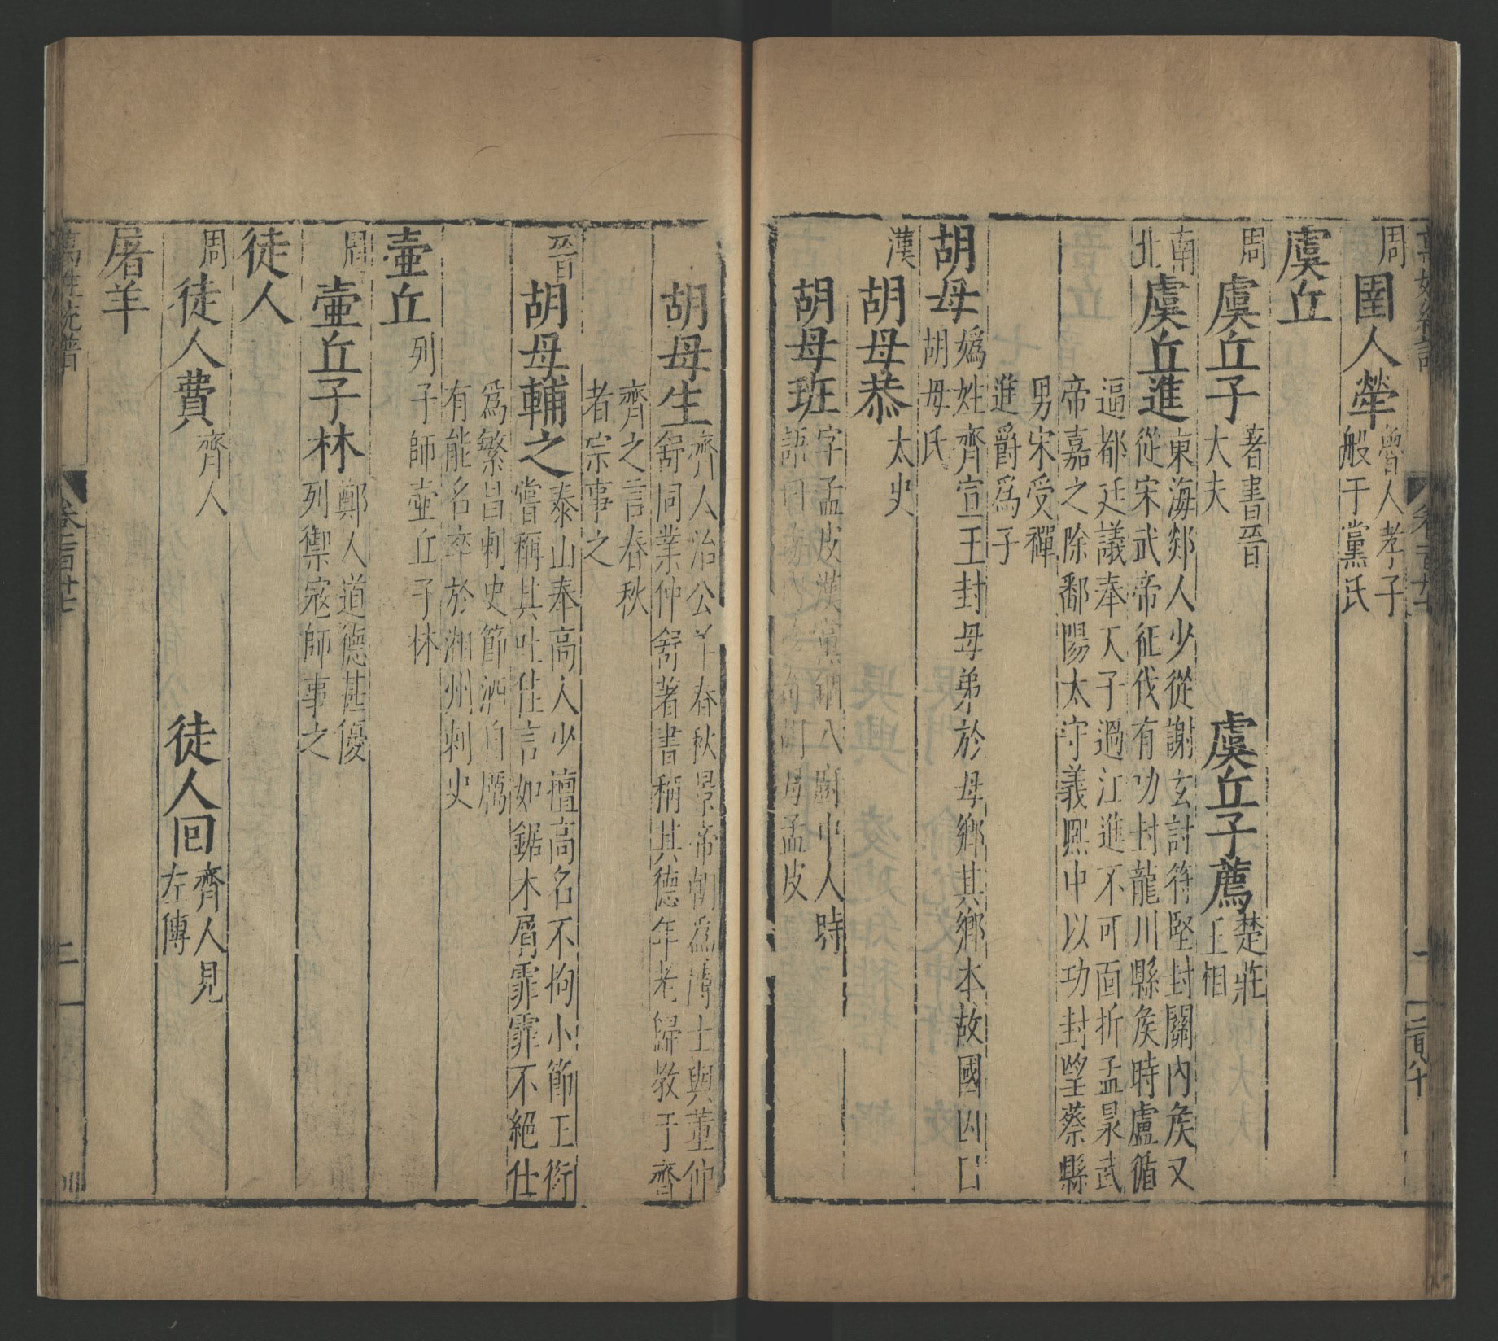 周 圉人犖 魯人孝子
般于黨氏
虞丘
周 虞丘子 著書晉
大夫
虞丘子薦 楚莊
王相
南北 虞丘進 東海郯人少從謝玄討苻堅封關內侯又
從宋武帝征伐有功封龍川縣侯時盧循
逼都廷議奉天子過江進不可面折孟昶武
帝嘉之除鄱陽太守義熙中以功封望蔡縣
男宋受禪
進爵爲子
胡母 嬀姓齊宣王封母弟於母鄉其鄉本故國因曰
胡母氏
漢 胡母恭 太史
胡母班 字孟皮漢 八廚中人時
語曰 胡母孟皮
胡母生 齊人治公羊春秋景帝朝爲博士與董仲
舒同業仲舒著書稱其德年老歸教于齊
齊之言春秋
者宗事之
晉 胡母輔之 泰山奉高人少擅高名不拘小節王衍
嘗稱其吐佳言如鋸木屑霏霏不絕仕
爲繁昌刺史節酒自厲
有能名卒於湘州刺史
壷丘 列子師壷丘子林
周 壷丘子林 鄭人道德甚優
列禦寇師事之
徒人
周 徒人費 齊人
徒人回 齊人見
左傳
屠羊
萬姓統譜